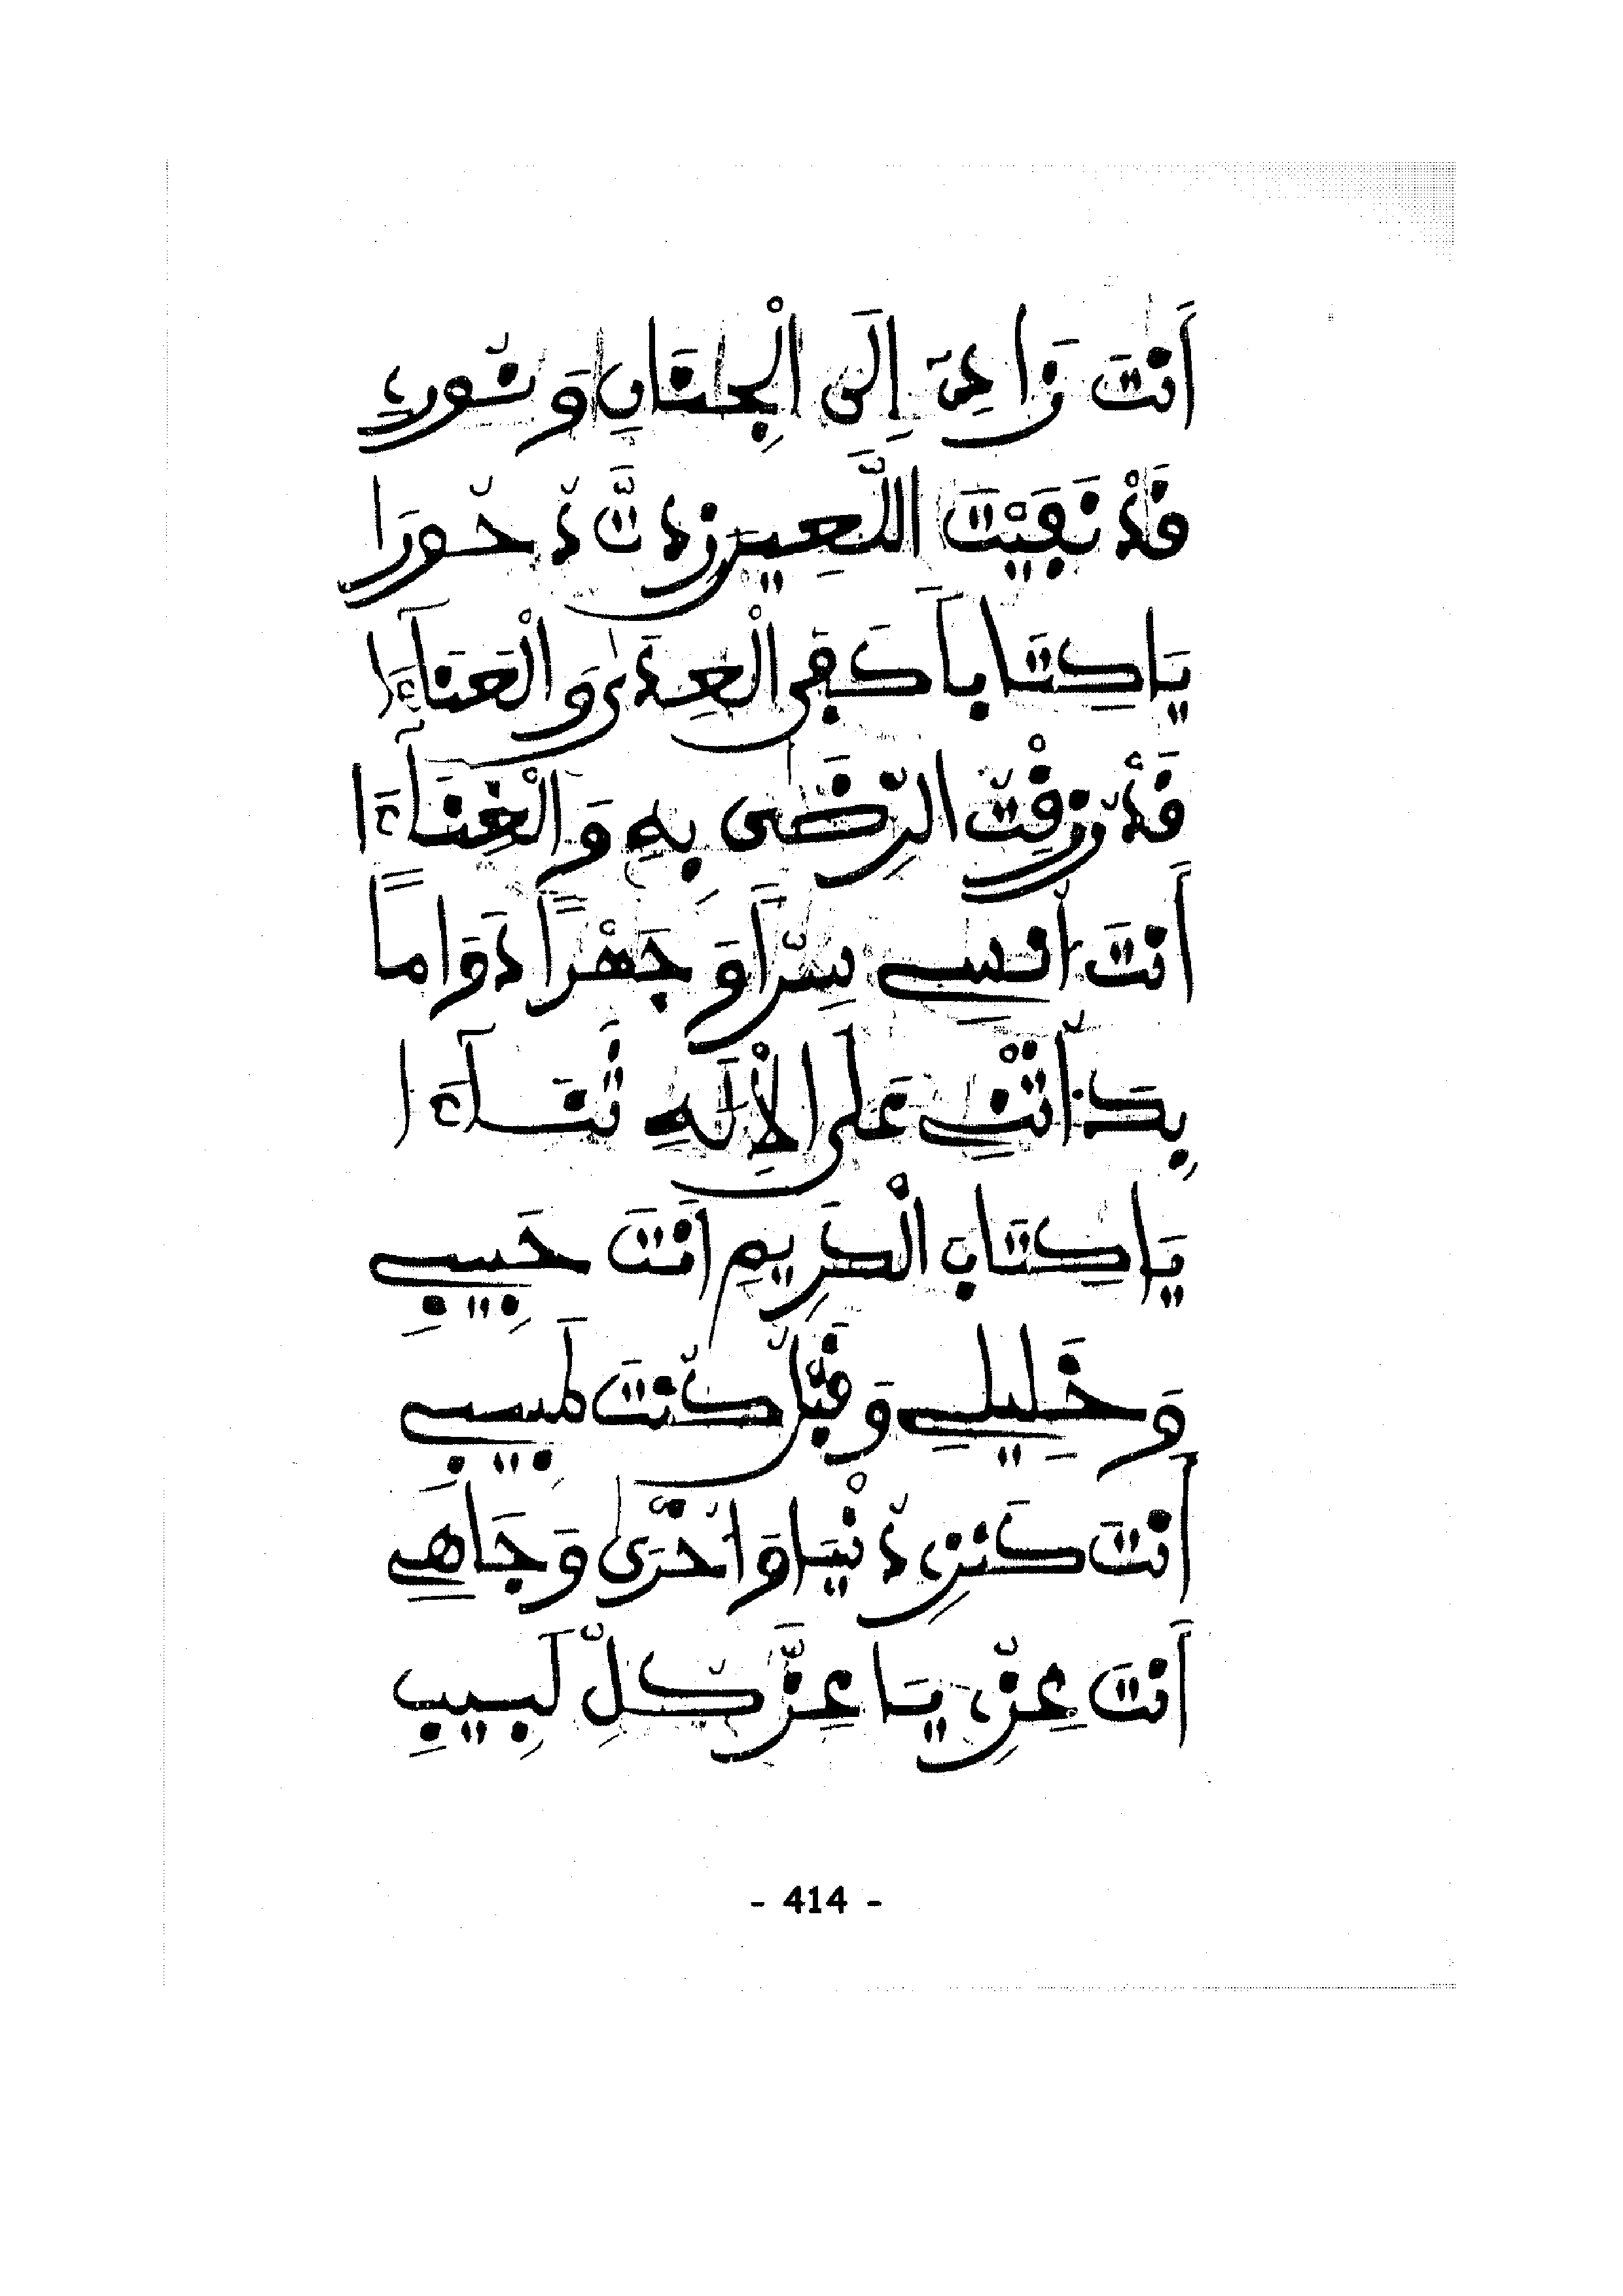 أَنْتَ زَادِي إِلَى الْجِنَانِ وَنُورِي
قَدْ نَفَيْتَ اللَّعِينَ زِدْتَّ دُحُورَا
يَا كِتَاباً كَفَى الْعِدَى وَالْعَنَاءَا
قَدْ رُزِقْتُ الرِّضَى بِهِ وَالْغِنَاءَا
أَنْتَ أُنْسِي سِرّاً وَجَهْراً دَوَاماً
بِكَ أُثْنِي عَلَى الْإِلَهِ ثَنَاءَا
يَا كِتَابَ الْكَرِيمِ أَنْتَ حَبِيبِي
وَخَلِيلِي وَقَبْلُ كُنْتَ طَبِيبِي
أَنْتَ كَنْزِي دُنْيَا وَأُخْرَى وَجَاهِي
أَنْتَ عِزِّي يَا عِزَّ كُلِّ لَبِيبِ
- 414 -